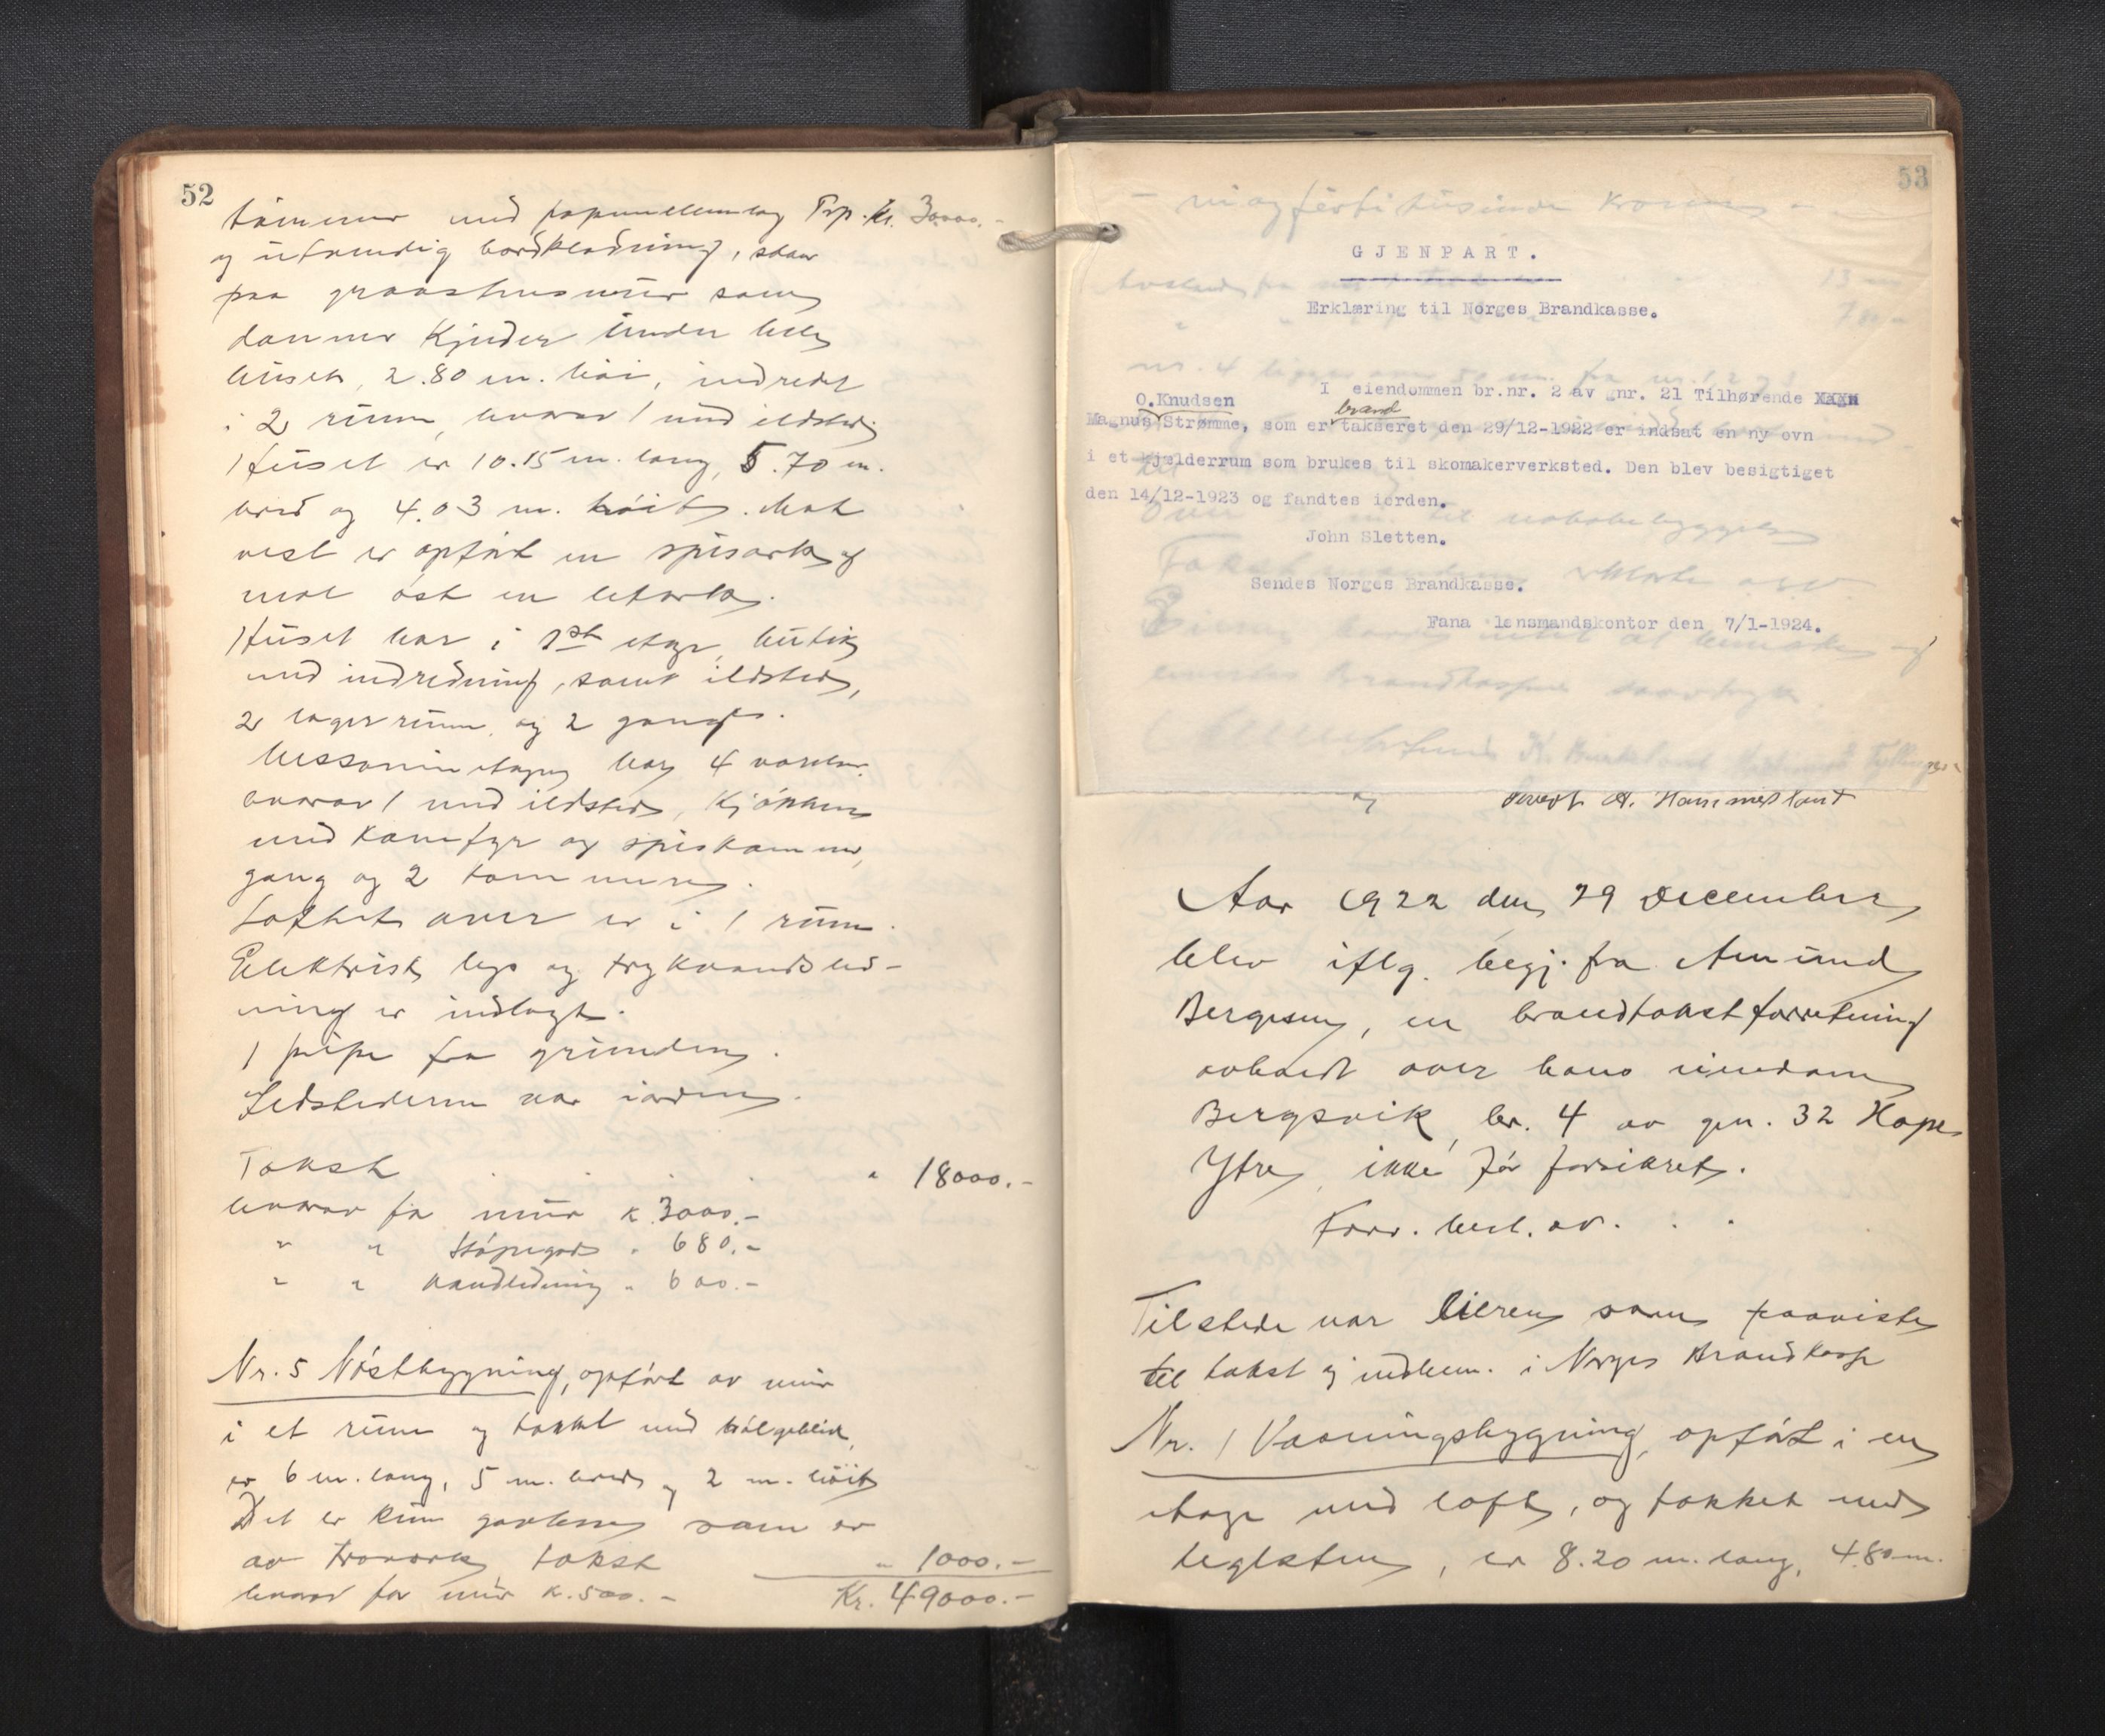 52
tømmer med papmellemlag Trp. kr. 30000.-
og utvendig bordklædning, staar
paa graastensmur som
danner kjelder under hele
huset, 2.80 m. høi, indredet
i 2 rum, hvorav 1 med ildsted.
Huset er 10.15 m. lang, 5.70 m.
bred og 4.03 m. høit. Mot
vest er opført en spisark og
mot øst en letark.
Huset har i 1ste etage, butik
med indredning, samt ildsted,
2 lagerrum, og 2 gange.
Messaninetagen har 4 værelser,
hvorav 1 med ildsted, kjøkken
med komfyr og spiskammer,
gang og 2
Loftet over er i 1 rum.
Elektrisk lys og trykvandsled-
ning er indlagt.
1 pipe fra grunden.
Ildstederne var iorden.
Takst " 18000.-
hvorav for mur k. 3000.-
" " støpegods " 680.-
" " vandledning " 600.-
Nr. 5 Nøstbygning, opført av mur
i et rum og tækket med bølgeblik,
er 6 m. lang, 5 m. bred og 2 m. høit
Det er kun gavlerne som er
av træverk, takst " 1000.-
hvorav for mur k. 500.- Kr. 49000.-
53
- niogførti tusinde kroner -
GJENPART.
Erklæring til Norges Brandkasse.
I eiendommen br.nr. 2 av gnr. 21 Tilhørende
O.Knudsen brand
Magnus Strømme, som er takseret den 29/12-1922 er indsat en ny ovn
i et kjælderrum som brukes til skomakerverksted. Den blev besigtiget
den 14/12-1923 og fandtes iorden.
John Sletten.
Sendes Norges Brandkasse.
Fana lensmandskontor den 7/1-1924.
og Sivert A. Hammesland
Aar 1922 den 29 December
blev iflg. begj. fra Amund
Bergesen, en brandtakstforretning
avholdt over hans eiendom
Bergsvik, br. 4 av gnr. 32 Hope
Ytre, ikke før forsikret.
Forr. best. av . . .
Tilstede var Eieren som paaviste
til takst og indlem. i Norges Brandkasse
Nr. 1 Vaaningsbygning, opført i en
etage med loft, og tækket med
teglsten, er 8.20 m. lang, 4.80 m.